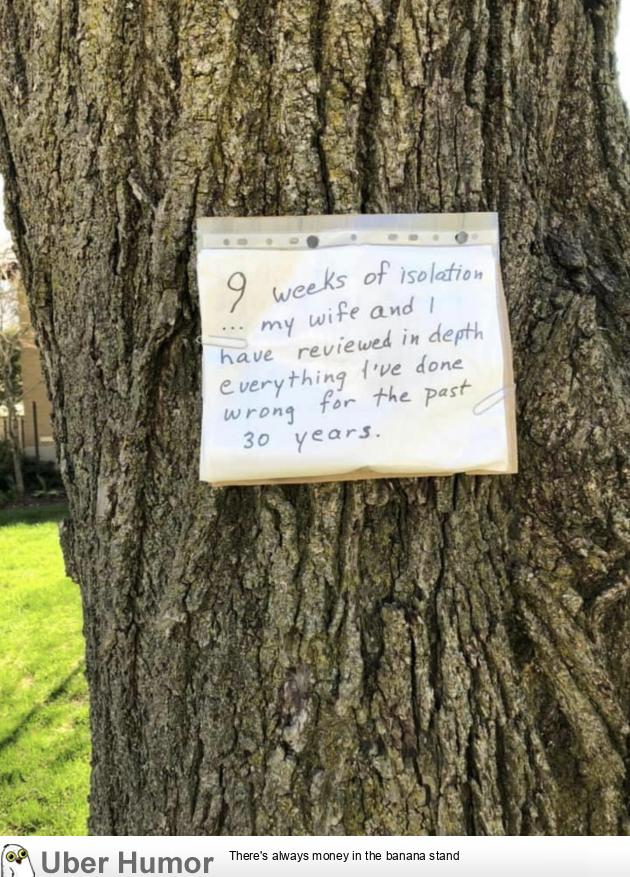 9 weeks of isolation
... my wife and I
have reviewed in depth
everything I've done
wrong for the past
30 years.
Uber Humor
There's always money in the banana stand